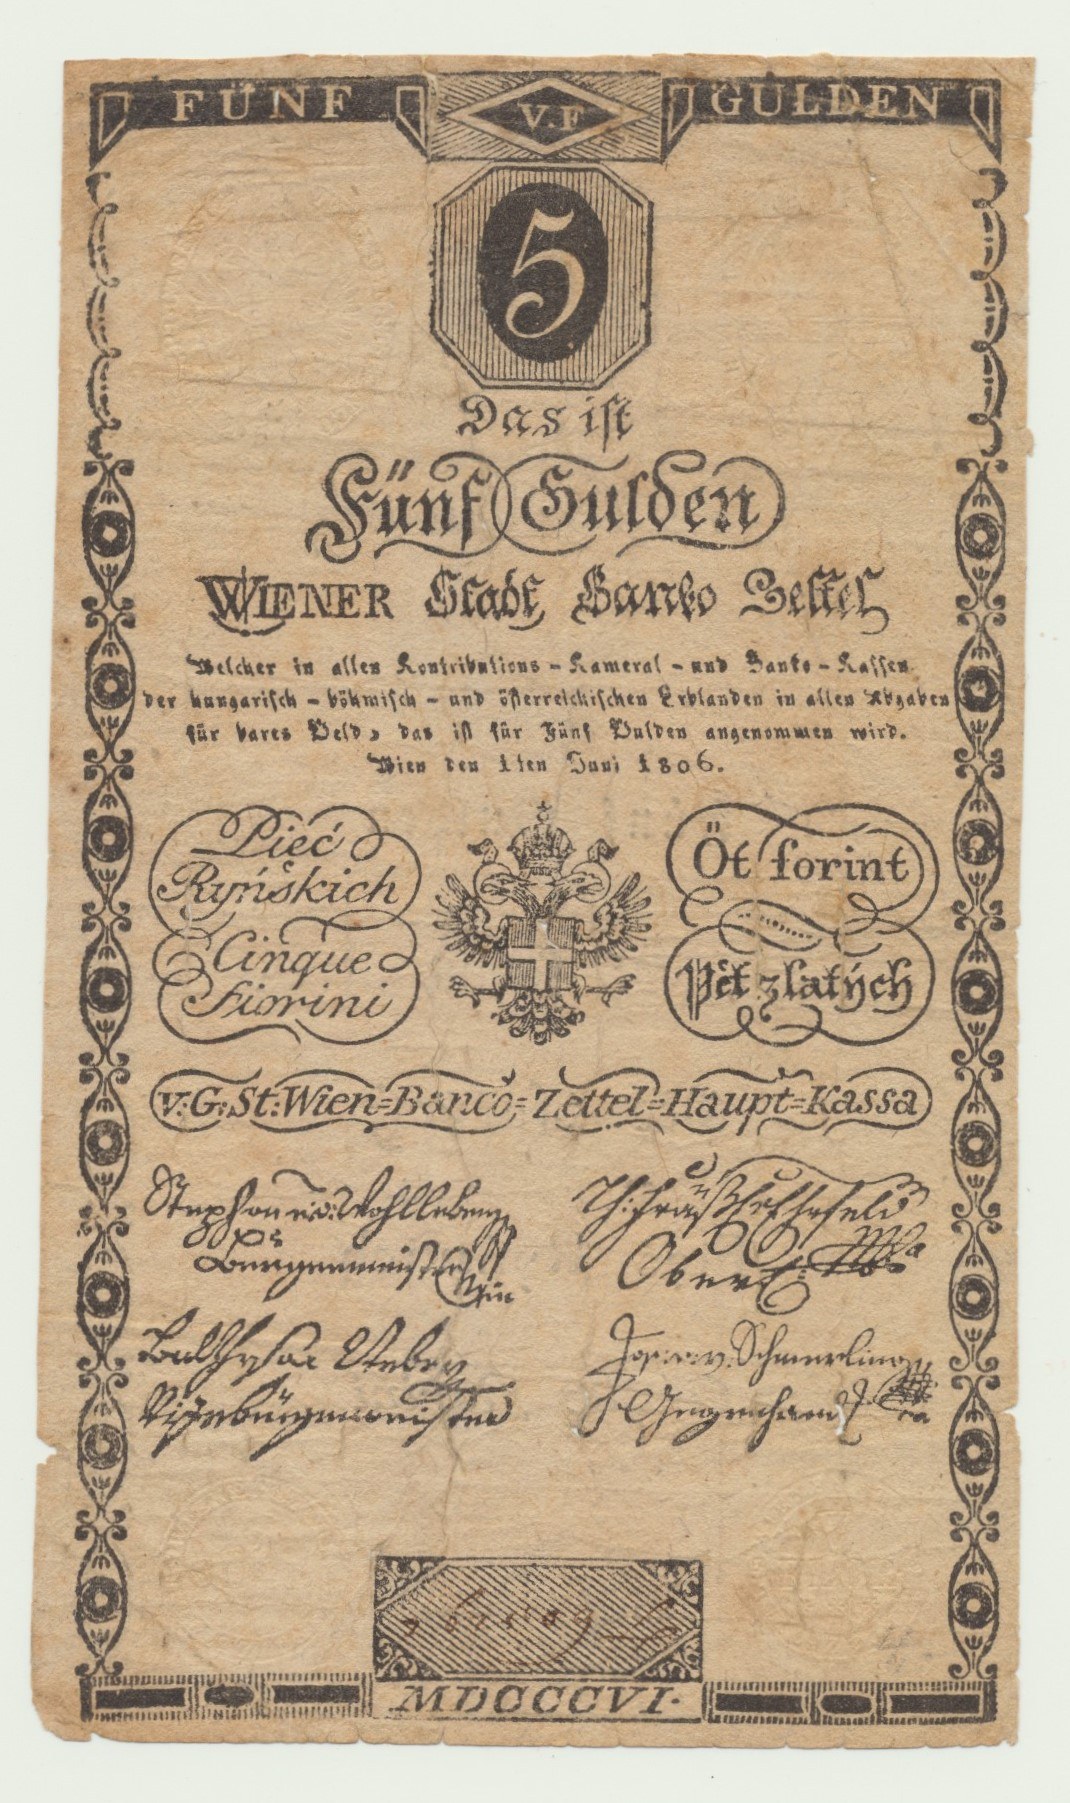 FÜNF V.F GULDEN
5
Das ist
Fünf Gulden
WIENER Stadt Banko Zettel
Welcher in allen Kontributions - Kameral - und Banko - Kassen
der hungarisch - böhmisch - und österreichischen Erblanden in allen Abgaben
für bares Geld, das ist für Fünf Gulden angenommen wird.
Wien den 1ten Juni 1806.
Pieć
Ryńskich
Cinque
Fiorini
Öt forint
Pět zlatých
v: G: St: Wien=Banco=Zettel=Haupt=Kassa
Stephan
Burgermeister
Ober
Vizebürgermeister
v: Schmerling
MDCCCVI.